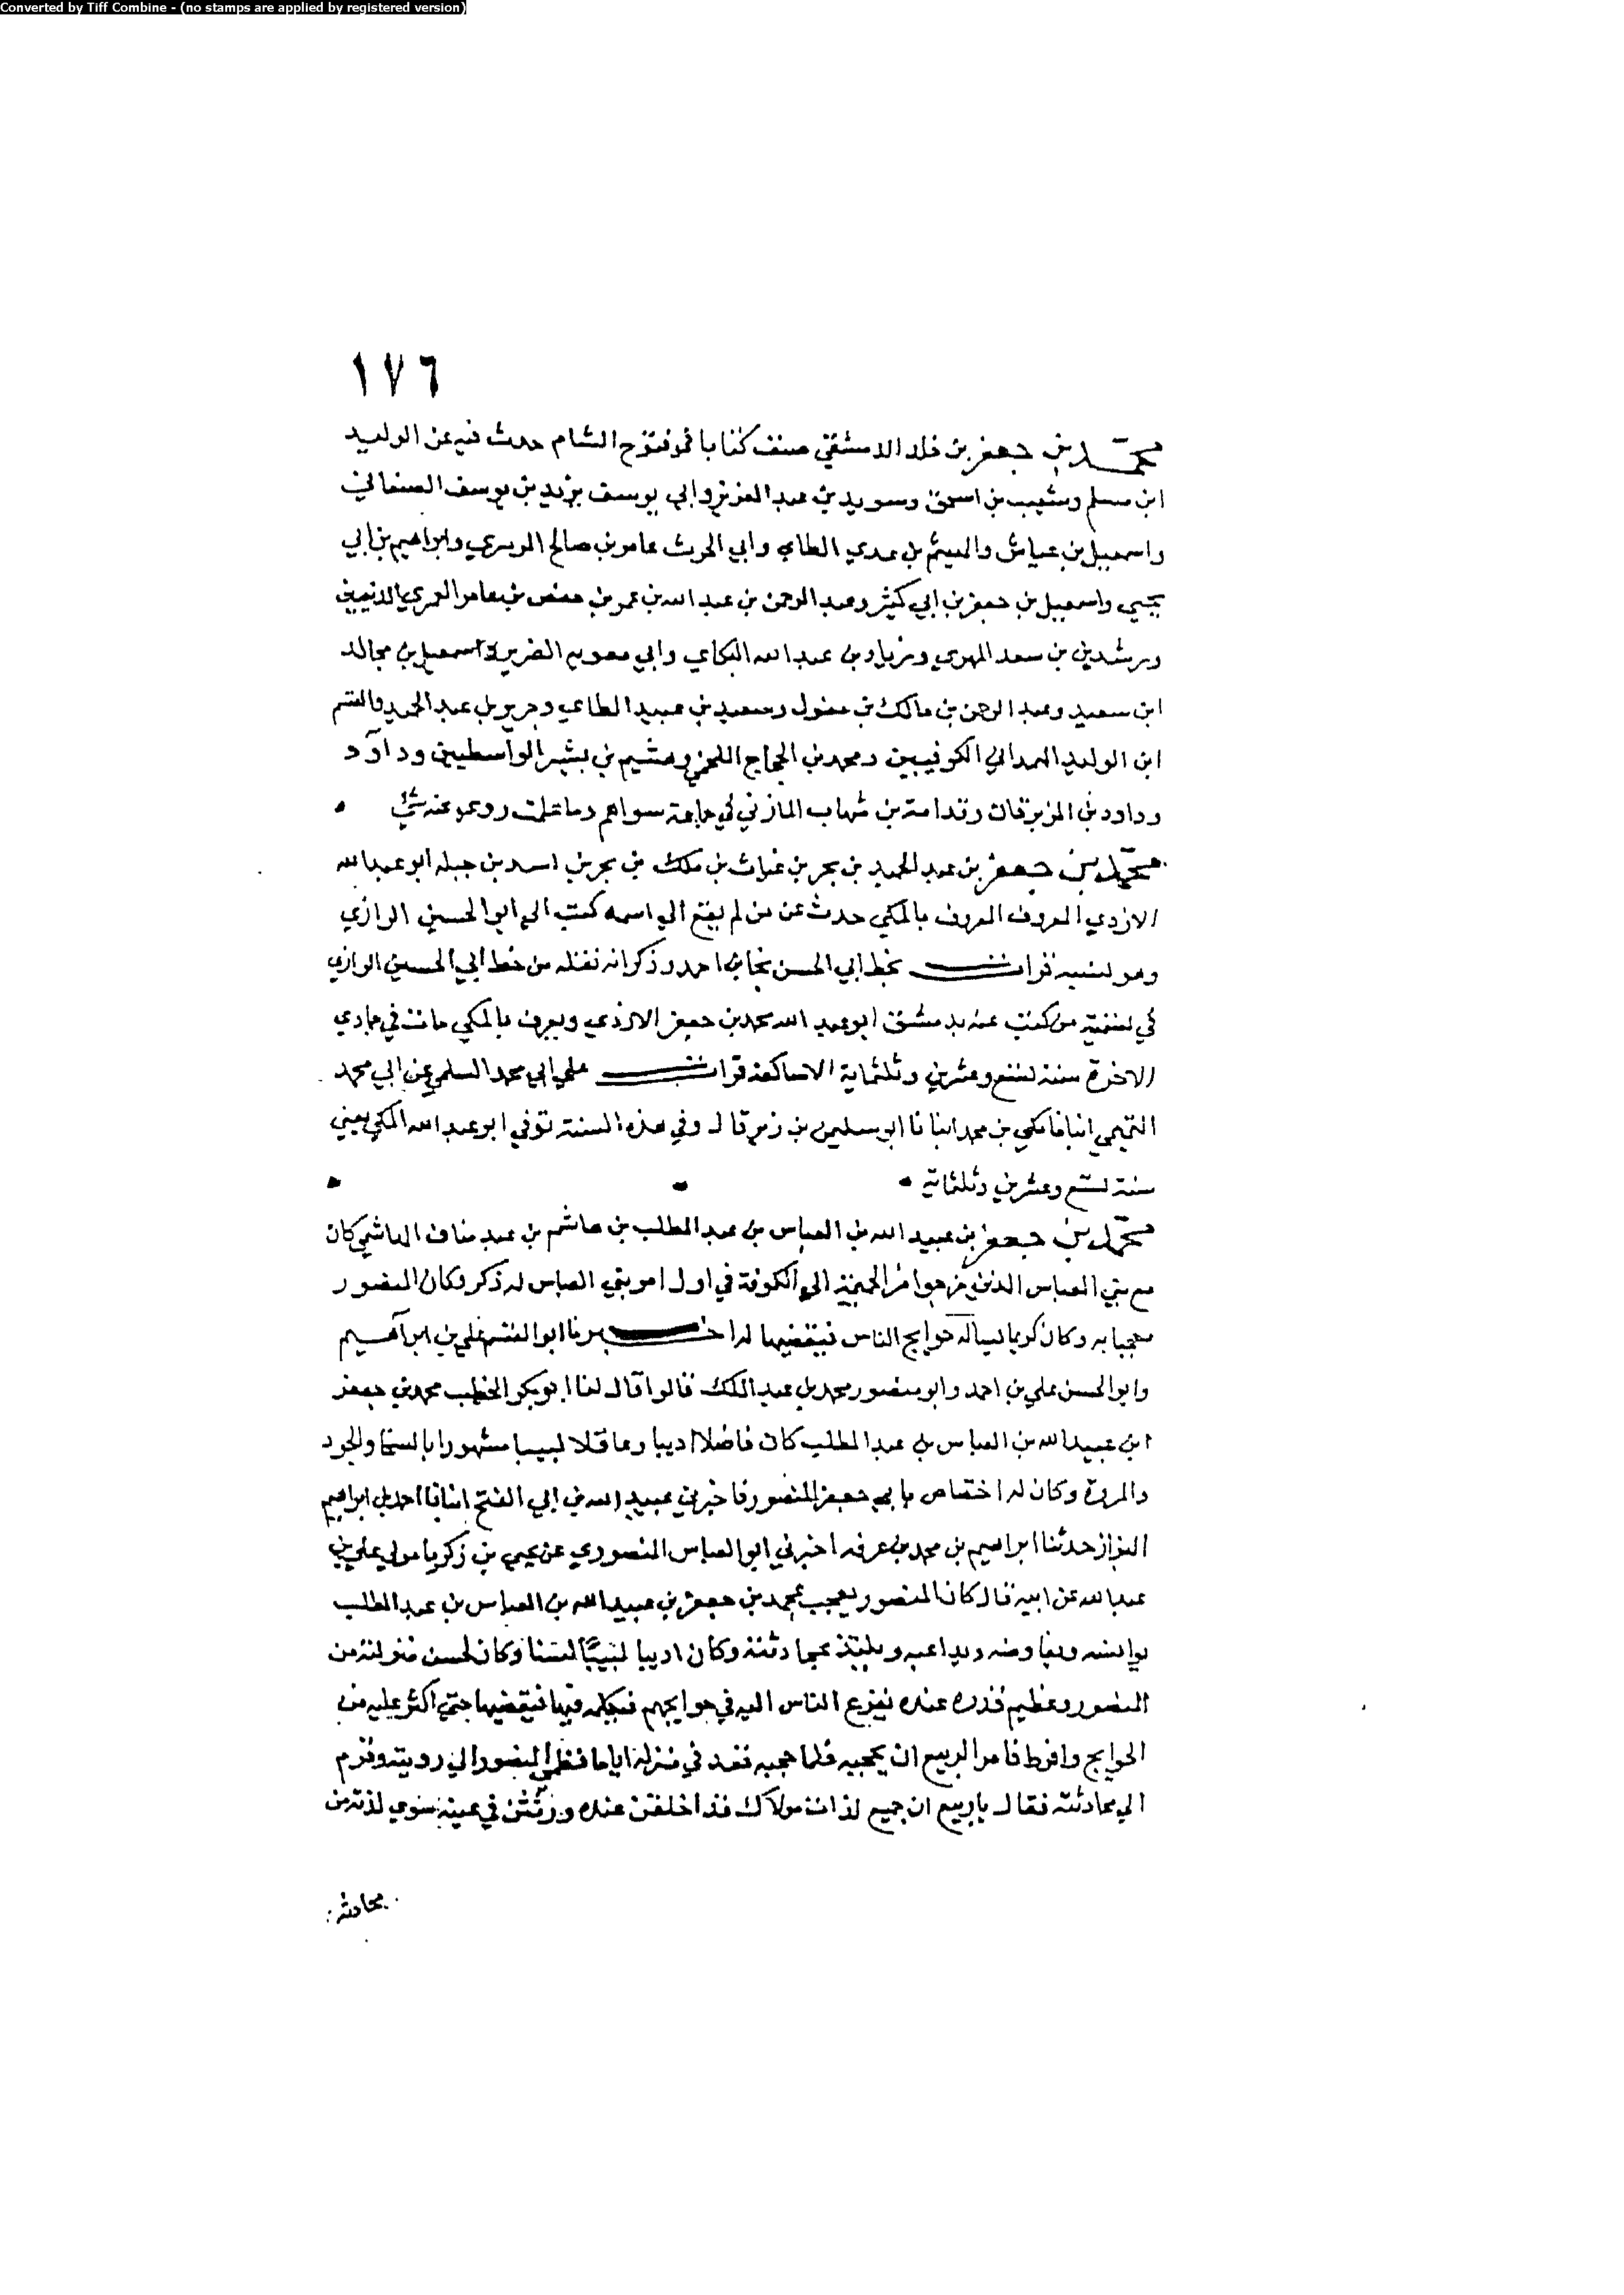 Converted by Tiff Combine - (no stamps are applied by registered version)
١٧٦
محمد بن جعفر بن خلد الدمشقي صنف كتابا في فتوح الشام حدث فيه عن الوليد
ابن مسلم وشعيب بن اسحق وسويد بن عبد العزيز وابي يوسف يزيد بن يوسف الصنعاني
واسمعيل بن عياش والهيثم بن عدي الطاي وابي الحرث عامر بن صالح الزبيري وابراهيم بن ابي
يحيى واسمعيل بن جعفر بن ابي كثير وعبد الرحمن بن عبد الله بن عمر بن حفص بن عاصر العمري المدنيين
ورشدين بن سعد المهري وزياد بن عبد الله البكاي وابي معوية الضرير واسمعيل بن مجالد
ابن سعيد وعبد الرحمن بن مالك بن مغول وسعيد بن عبيد الطاي وجرير بن عبد الحميد والقسم
ابن الوليد الهمداني الكوفيين ومحمد بن الحجاج اللخمي وهشيم بن بشير الواسطيين وداود
وداود بن الزبرقان وقدامة بن شهاب المازني في جماعة سواهم وما علمت روى عنه شي
محمد بن جعفر بن عبد الحميد بن بحر بن غياث بن ملك بن بحر بن اسد بن جبلة ابو عبد الله
الازدي المعروف المعروف بالمكي حدث عن من لم يقع الي اسمه كتب الي ابو الحسين الرازي
وهو لنسبه قرات بخط ابي الحسن نجا بن احمد وذكر انه نقله من خط ابي الحسين الرازي
في تسمية من كتب عنه بدمشق ابو عبد الله محمد بن جعفر الازدي ويعرف بالمكي مات في جمادي
الاخرة سنة تسع وعشرين وثلثماية الاساكفة قرات على ابي محمد السلمي عن ابي محمد
التميمي انبانا مكي بن محمد انبانا ابو سليمن بن زبر قال وفي هذه السنة توفي ابو عبد الله المكي يعني
سنة تسع وعشرين وثلثماية
محمد بن جعفر بن عبيد الله بن العباس بن عبد المطلب بن هاشم بن عبد مناف الهاشمي كان
مع بني العباس الذين خرجوا من الحميمة الى الكوفة في اول امر بني العباس له ذكر وكان المنصور
معجبا به وكان كريما يساله حوايج الناس فيقضيها له اخبرنا ابو القسم علي بن ابراهيم
وابو الحسن علي بن احمد وابو منصور محمد بن عبد الملك قالوا قال لنا ابو بكر الخطيب محمد بن جعفر
ابن عبيد الله بن العباس بن عبد المطلب كان فاضلا اديبا وعاقلا لبيبا مشهورا بالسخا والجود
والمروة وكان له اختصاص بابي جعفر المنصور فاخبرني عبيد الله بن ابي الفتح انبانا احمد بن ابراهيم
البزاز حدثنا ابراهيم بن محمد بن عرفه اخبرني ابو العباس المنصوري عن يحيى بن زكريا مولى علي بن
عبد الله عن ابيه قال كان المنصور يعجب بمحمد بن جعفر بن عبيد الله بن العباس بن عبد المطلب
يوانسه ويفاوضه ويداعبه ويلتذ بمحادثته وكان اديبا لبيبا لسنا وكان لحسن منزلته من
المنصور وعظيم قدره عنده يفزع الناس اليه في حوايجهم فيكلمه فيها فيقضيها حتى اكثر عليه من
الحوايج وافرط فامر الربيع ان يحجبه فلما حجبه قعد في منزله اياما فظمى المنصور الى رويته وقرم
الى محادثته فقال يا ربيع ان جميع لذات مولاك قد اخلقن عنده ورثثن في عينه سوى لذته من
محادثة